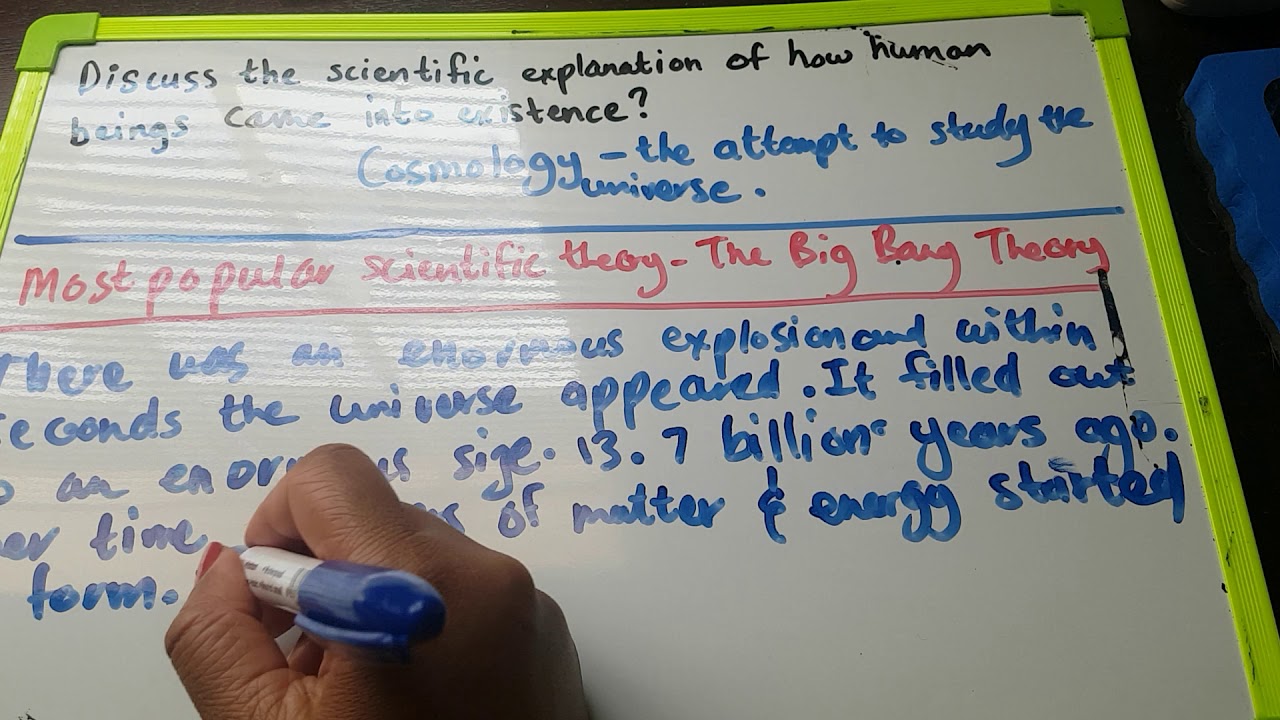 Discuss the scientific explanation of how human
beings came into existence?
Cosmology - the attempt to study the
universe.
Most popular scientific theory - The Big Bang Theory
There was an enormous explosion and within
econds the universe appeared. It filled out
o an enor us size. 13.7 billion years ago.
er time of matter & energy started
form.